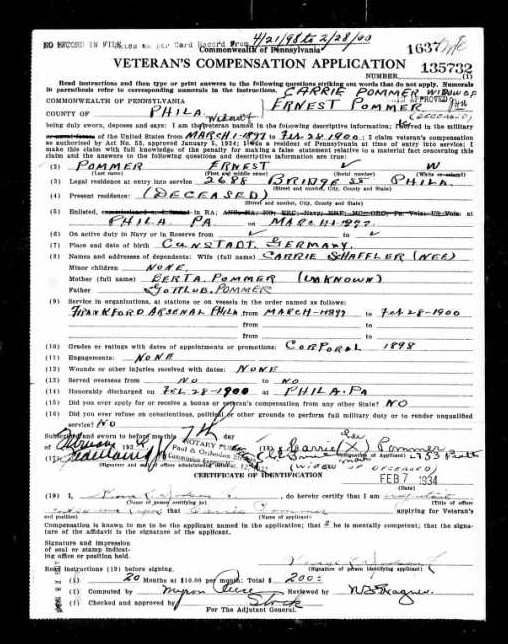 NO RECORD IN FILE
4/21/98 to 2/28/00
Commonwealth of Pennsylvania
1637
VETERAN'S COMPENSATION APPLICATION
NUMBER 135732 (1)
Read instructions and then type or print answers to the following questions striking out words that do not apply. Numerals
in parenthesis refer to corresponding numerals in the instructions.
CARRIE POMMER WIDOW OF
COMMONWEALTH OF PENNSYLVANIA
ERNEST POMMER
COUNTY OF PHILA
(DECEASED)
being duly sworn, deposes and says: I am the veteran named in the following descriptive information; I served in the military
of the United States from MARCH-1-1897 to FEB-28-1900: I claim veteran's compensation
as authorized by Act No. 53, approved January 5, 1934; I was a resident of Pennsylvania at time of entry into service; I
make this claim with full knowledge of the penalty for making a false statement relative to a material fact concerning this
claim and the answers to the following questions and descriptive information are true:
(2) POMMER ERNEST W
(Last name) (First and middle name) (Serial number) (White or colored)
(3) Legal residence at entry into service 2688 BRIDGE ST PHILA
(Street and number, City, County and State)
(4) Present residence: (DECEASED)
(Street and number, City, County and State)
(5) Enlisted, in RA; at
PHILA PA on MARCH-1-1897
(6) On active duty in Navy or in Reserve from to
(7) Place and date of birth CANSTADT, GERMANY.
(8) Names and addresses of dependents: Wife (full name) CARRIE SHAFFLER (NEE)
Minor children NONE
Mother (full name) BERTA POMMER (UNKNOWN)
Father GOTTLOB. POMMER
(9) Service in organizations, at stations or on vessels in the order named as follows:
FRANKFORD ARSENAL PHILA, from MARCH-1-1897 to FEB-28-1900
from to
from to
(10) Grades or ratings with dates of appointments or promotions: CORPORAL 1898
(11) Engagements: NONE
(12) Wounds or other injuries received with dates: NONE
(13) Served overseas from NO to NO
(14) Honorably discharged on FEB 28-1900 at PHILA. PA
(15) Did you ever apply for or receive a bonus or veteran's compensation from any other State? NO
(16) Did you ever refuse on conscientious, political or other grounds to perform full military duty or to render unqualified
service? NO
Subscribed and sworn to before me this 7th day
of 193
NOTARY PUBLIC
Carrie (X) Pommer
(Signature of Applicant)
(WIDOW OF DECEASED)
CERTIFICATE OF IDENTIFICATION
FEB 7 1934
(Date)
(19) I, , do hereby certify that I am
(Name of person certifying to) (Title of officer
that applying for Veteran's
(Name of applicant)
Compensation is known to me to be the applicant named in the application; that he is mentally competent; that the signa-
ture of the affidavit is the signature of the applicant.
Signature and impression
of seal or stamp indicat-
ing office or position held.
(Signature of person identifying applicant)
Read Instructions (19) before signing.
(1) 20 Months at $10.00 per month: Total $ 200
(1) Computed by Reviewed by
(1) Checked and approved by
For The Adjutant General.